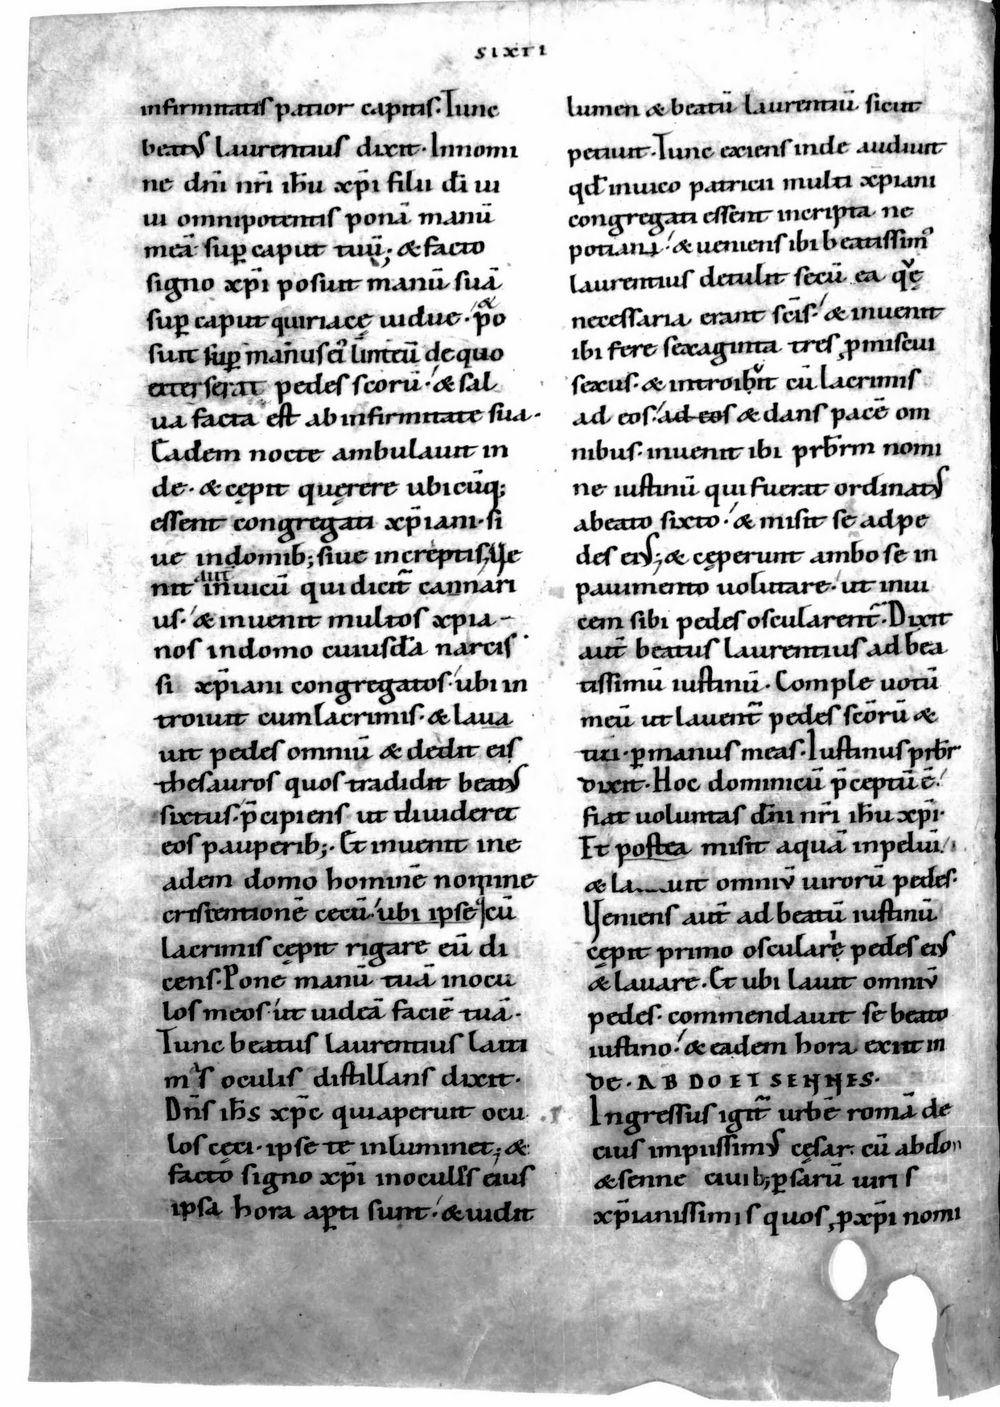 SIXTI
infirmitatis patior capitis. Tunc
beatus laurentius dixit. Innomi
ne dñi nr̄i ih̄u xp̄i filii dī ui
ui omnipotentis ponā manū
meā sup̱ caput tuū; & facto
signo xp̄i posuit manū suā
sup̱ caput quiriacę uidue. & po
suit sup̱ man̄us ei᷒ linteū de quo
exterserat pedes scōrū. & sal
ua facta est ab infirmitate sua.
Eadem nocte ambulauit in
de. & cępit quęrere ubicūq;
essent congregati xp̄iani. si
ue indomib; siue increptis, Ve
nit aut inuicū qui dicit̄ cannari
us. & inuenit multos xp̄ia-
nos indomo cuiusdā narcis
si xp̄iani congregatos. ubi in
troiuit cumlacrimis. & laua
uit pedes omniū & dedit eis
thesauros quos tradidit beatus
sixtus. p̄cipiens ut diuideret
eos pauperib;. Et inuenit ine
adem domo hominē nomine
cristentionē cecū. ubi ipse cū
lacrimis cępit rigare eū di
cens. Pone manū tuā inocu
los meos. ut uideā faciē tuā.
Tunc beatus laurentius lacri
mis oculis distillans dixit.
Dn̄s ih̄s xp̄c quiaperuit ocu
los cęci. ipse te inluminet; &
facto signo xp̄i inoculis eius
ipsa hora ap̱ti sunt. & uidit
lumen & beatū laurentiū sicut
petiuit. Tunc exiens inde audiuit
qd̄ inuico patricii multi xp̄iani
congregati essent incripta ne
potiani. & ueniens ibi beatissim᷒
laurentius detulit secū ea quę
necessaria erant scīs. & inuenit
ibi fere sexaginta tres p̱miscui
sexus. & introibit cū lacrimis
ad eos. ad eos & dans pacē om
nibus. inuenit ibi prb̄rm nomi
ne iustinū qui fuerat ordinatus
abeato sixto. & misit se adpe
des eius; & cęperunt ambo se in
pauimento uolutare. ut inui
cem sibi pedes oscularent̄. Dixit
aut̄ beatus laurentius ad bea
tissimū iustinū. Comple uotū
meū ut lauent̄ pedes scōrū &
tui. p̱manus meas. Iustinus prb̄r
dixit. Hoc dominicū p̄ceptū ē.
fiat uoluntas dn̄i nr̄i ih̄u xp̄i.
Et postea misit aquā inpelui.
& la uit omniū uirorū pedes.
Veniens aut̄ ad beatū iustinū
cępit primo osculare pedes eius
& lauare. Et ubi lauit omniū
pedes. commendauit se beato
iustino. & eadem hora exiit in
de. ABDO ET SENNES.
Ingressus igit̄ urbē romā de
cius impiissimus cęsar. cū abdon
& senne ciuib; p̱sarū uiris
xp̄ianissimis quos, p̱xp̄i nomi